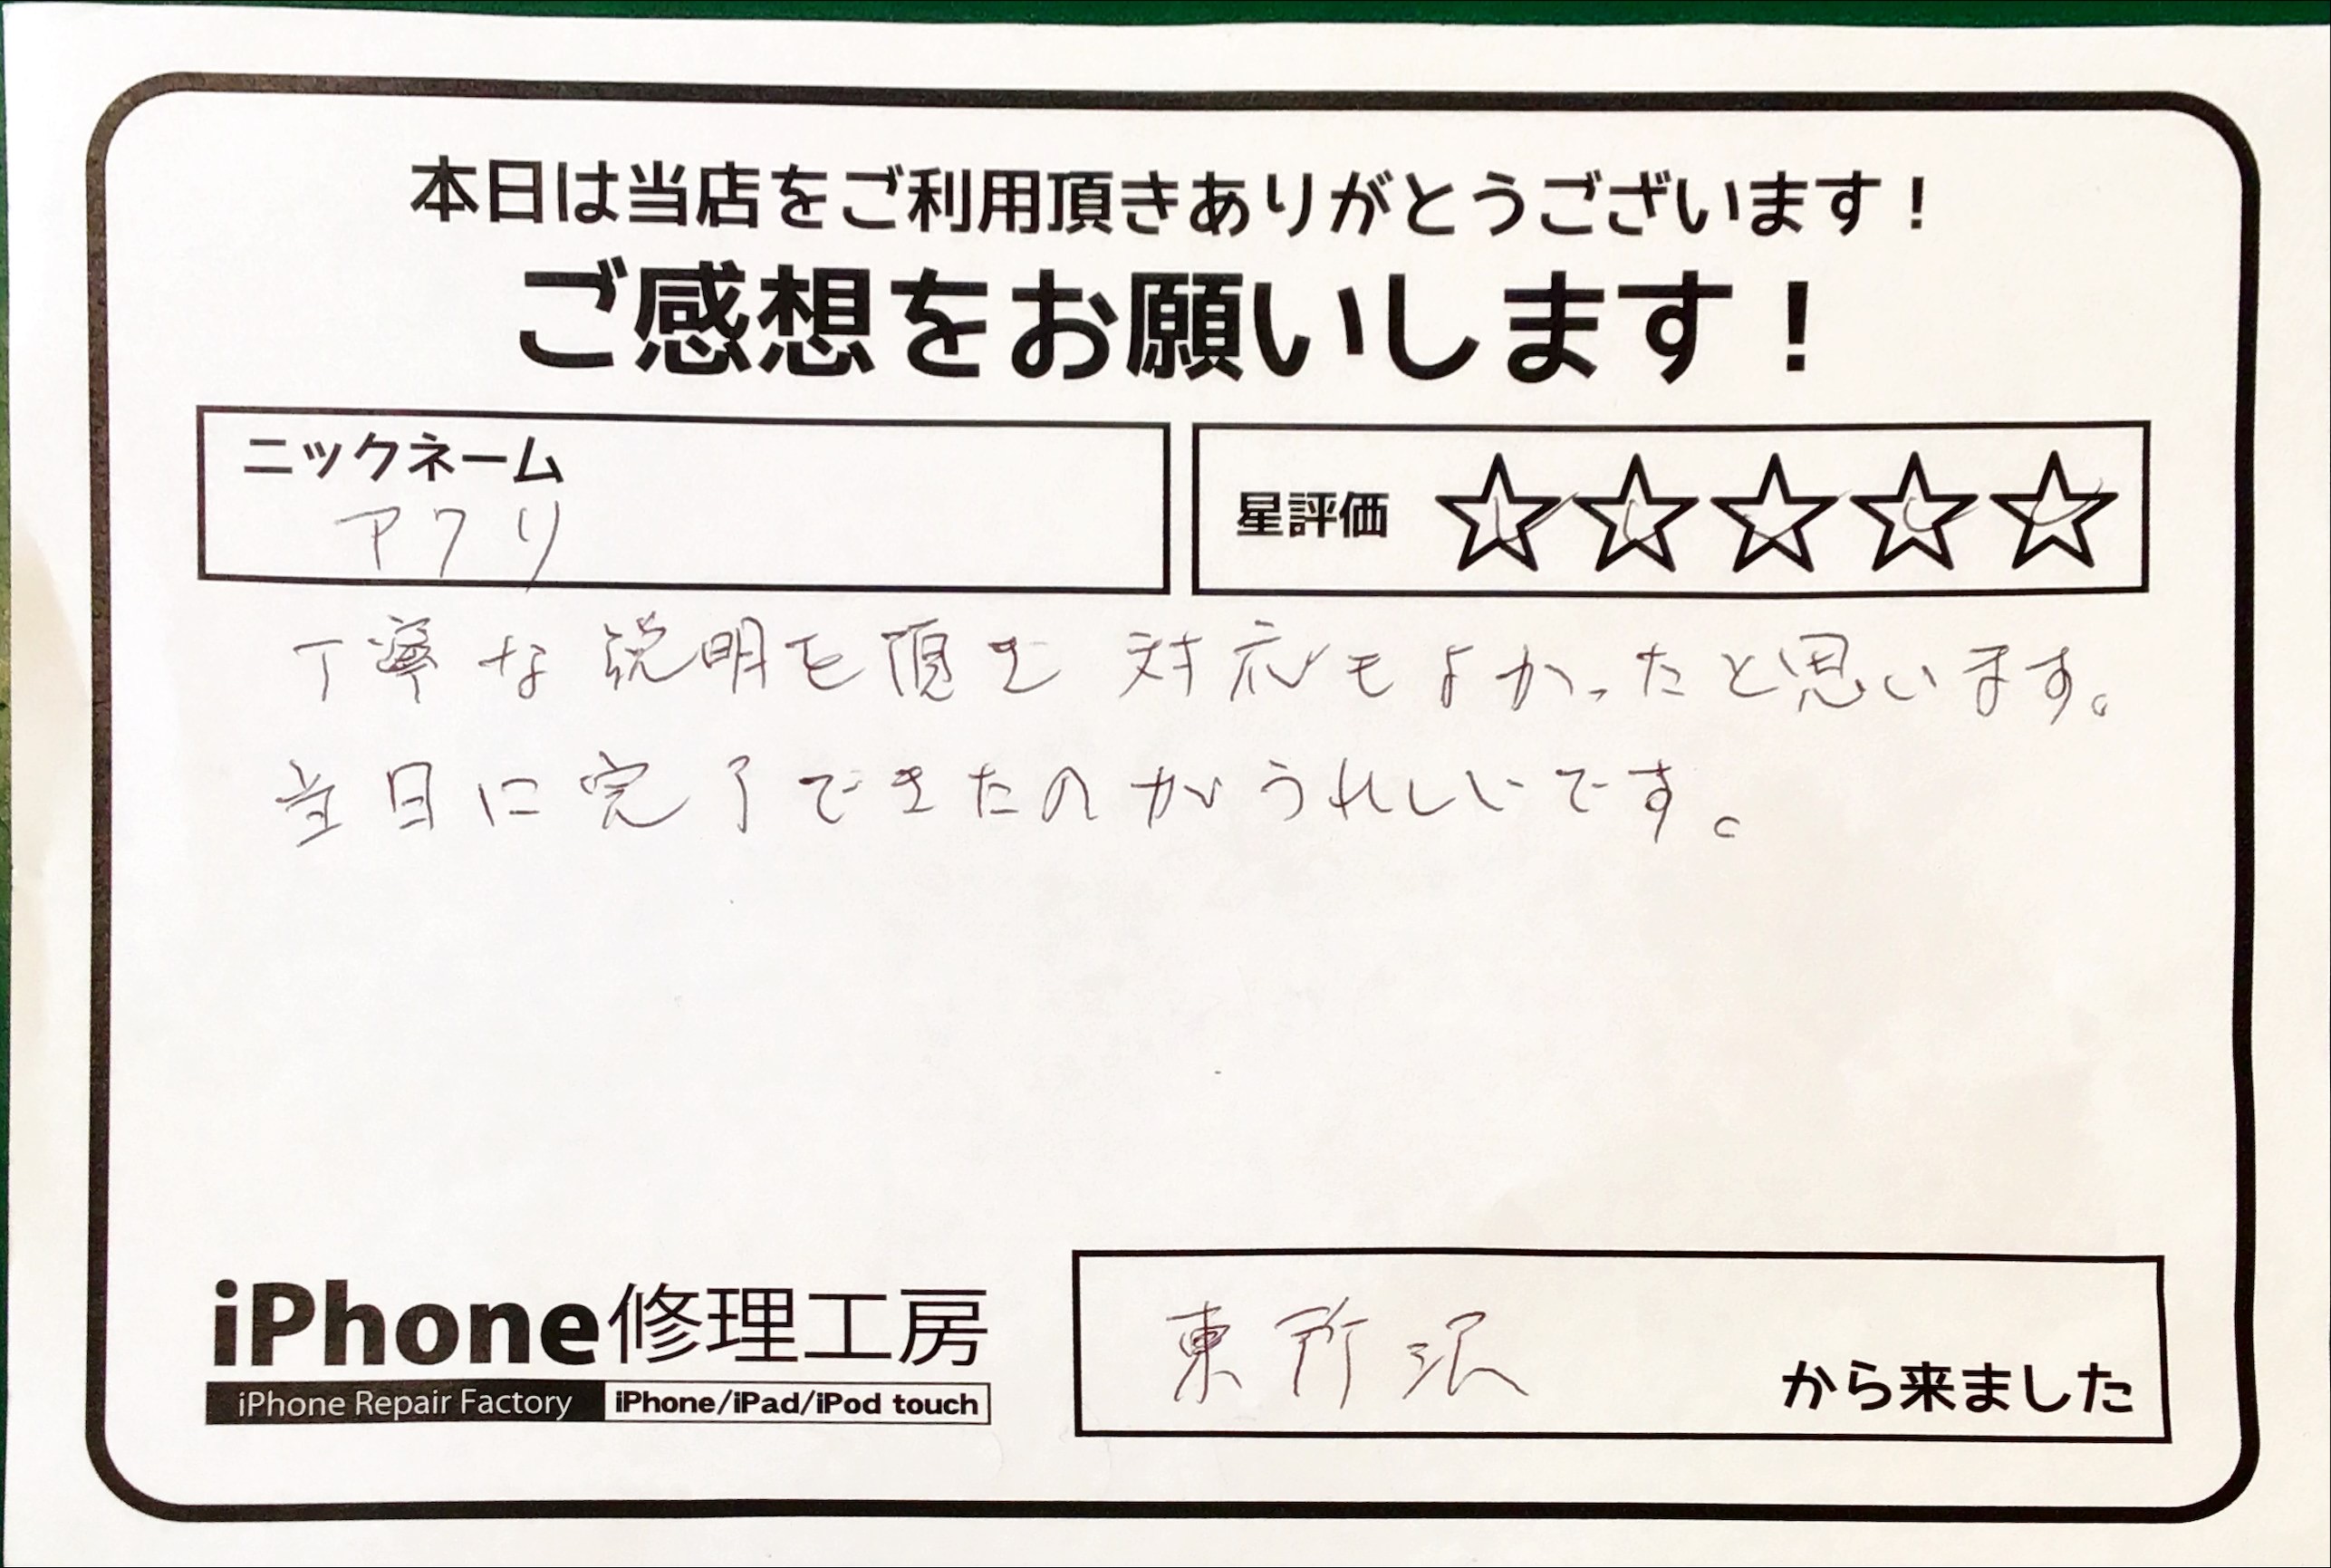 本日は当店をご利用頂きありがとうございます！
ご感想をお願いします！
ニックネーム
アクリ
星評価 ☆☆☆☆☆
丁寧な説明を頂き 対応もよかったと思います。
当日に完了できたのがうれしいです。
iPhone修理工房
iPhone Repair Factory iPhone/iPad/iPod touch
東所沢
から来ました